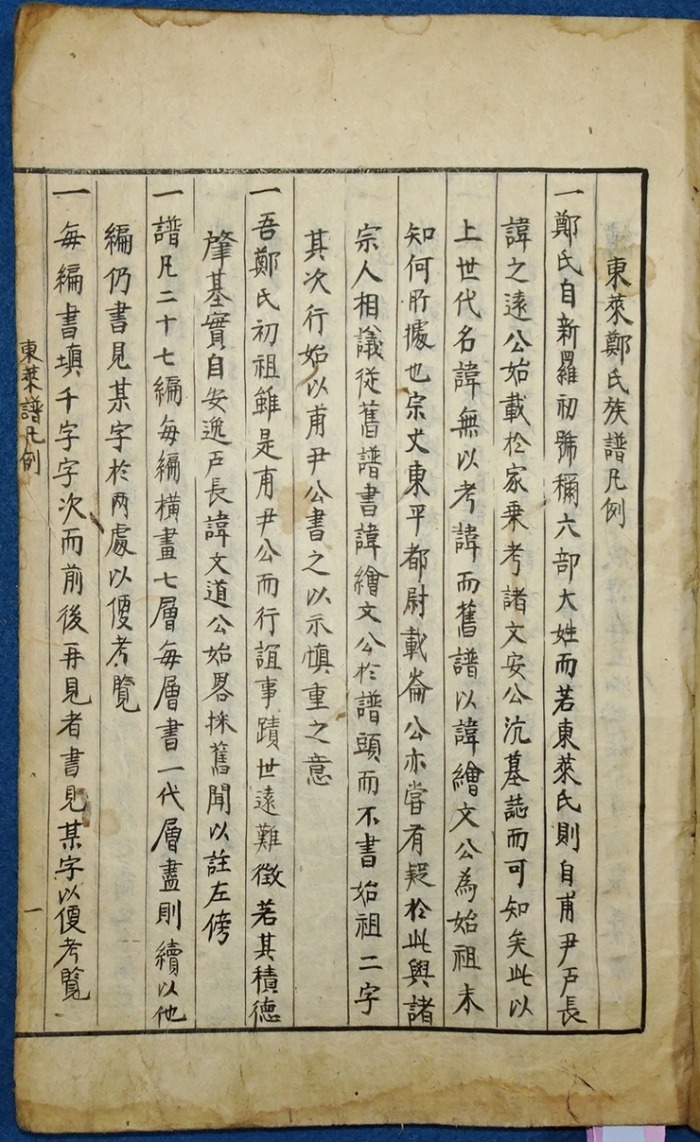 東萊鄭氏族譜凡例
一鄭氏自新羅初號稱六部大姓而若東萊氏則自甫尹戶長
諱之遠公始載於家乗考諸文安公沆墓誌而可知矣此以
上世代名諱無以考諱而舊譜以諱繪文公為始祖未
知何所據也宗丈東平都尉載崙公亦嘗有疑於此與諸
宗人相議從舊譜書諱繪文公於譜頭而不書始祖二字
其次行始以甫尹公書之以示慎重之意
一吾鄭氏初祖雖是甫尹公而行誼事蹟世遠難徵若其積德
肇基實自安逸戶長諱文道公始畧採舊聞以註左傍
一譜凡二十七編每編橫畫七層每層書一代層盡則續以他
編仍書見某字於兩處以便考覽
一每編書塡千字字次而前後再見者書見某字以便考覽
東萊譜凡例
一